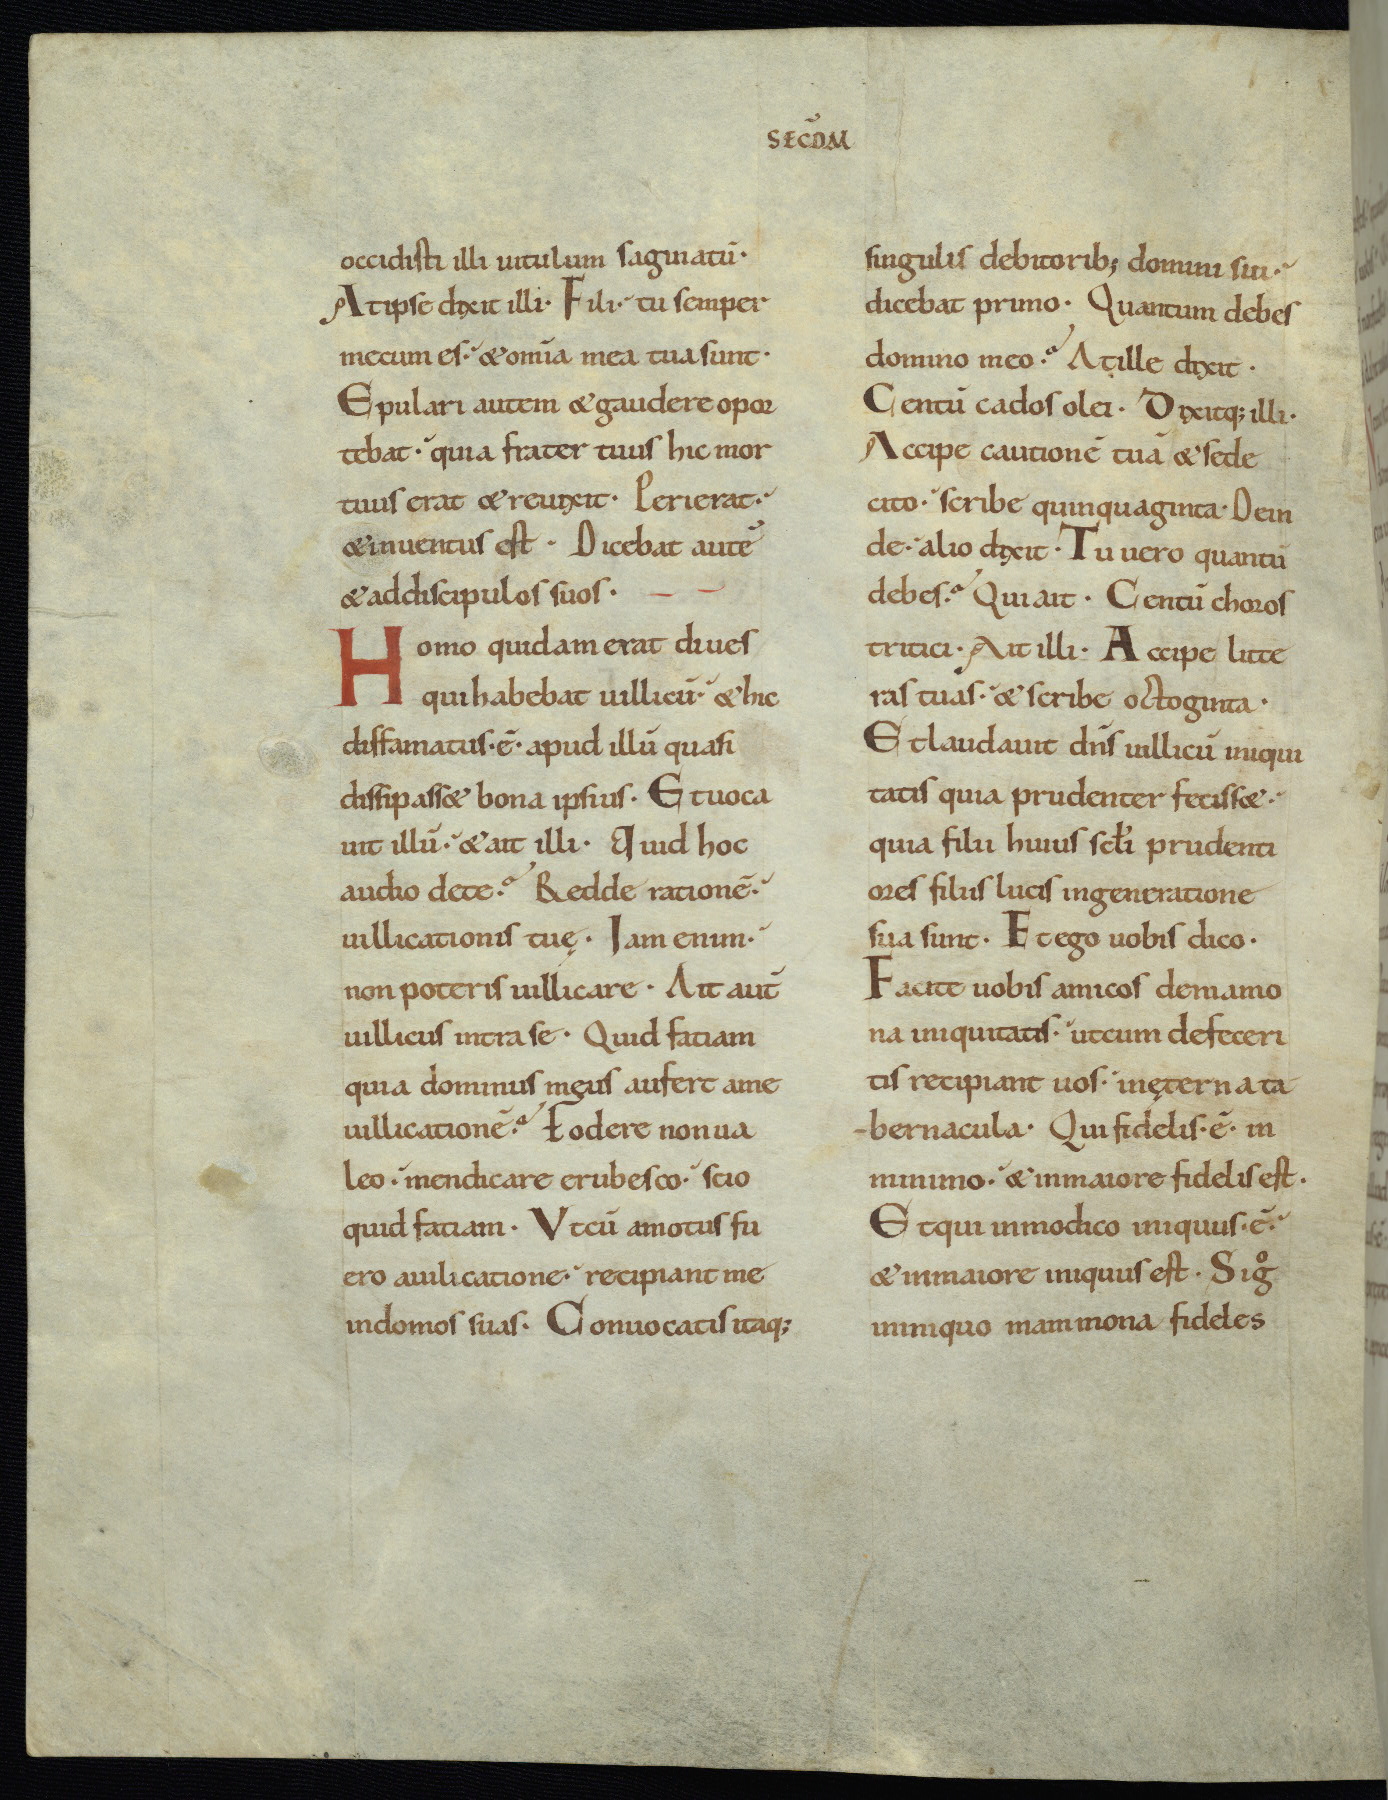 SECD̃M
occidisti illi uitulum saginatū·
Atipse dixit illi· Fili· tu semper
mecum es· &omīa mea tua sunt·
Epulari autem &gaudere opor
tebat· quia frater tuus hic mor
tuus erat &reuixit· Perierat·
&inuentus est· Dicebat autē
&addiscipulos suos·
Homo quidam erat diues
qui habebat uillicū· &hic
diffamatus·ē· apud illū quasi
dissipass& bona ipsius· Etuoca
uit illū· &ait illi· Quid hoc
audio dete? Redde rationē·
uillicationis tuę· Iam enim·
non poteris uillicare· Ait aut̄
uillicus intra se· Quid fatiam
quia dominus męus aufert ame
uillicationē? Fodere non ua
leo· mendicare erubesco· scio
quid fatiam· Vtcū amotus fu
ero auilicatione· recipiant me
indomos suas· Conuocatis itaq;
singulis debitorib; domini sui·
dicebat primo· Quantum debes
domino meo? Atille dixit·
Centū cados olei· Dixitq; illi·
Accipe cautionē tuā &sede
cito· scribe quinquaginta· Dein
de· alio dixit· Tu uero quantū
debes? Qui ait· Centū choros
tritici· Ait illi· Accipe litte
ras tuas· &scribe octoginta·
Etlaudauit dn̄s uillicū iniqui
tatis quia prudenter fetiss&·
quia filii huius scłi prudenti
ores filiis lucis ingeneratione
sua sunt· Et ego uobis dico·
Facite uobis amicos demamo
na iniquitatis· utcum defeceri
tis recipiant uos· inęterna ta
-bernacula· Qui fidelis·ē· in
minimo· &inmaiore fidelis est·
Etqui inmodico iniquus·ē·
&inmaiore iniquus est· Sig̊
ininiquo mammona fideles